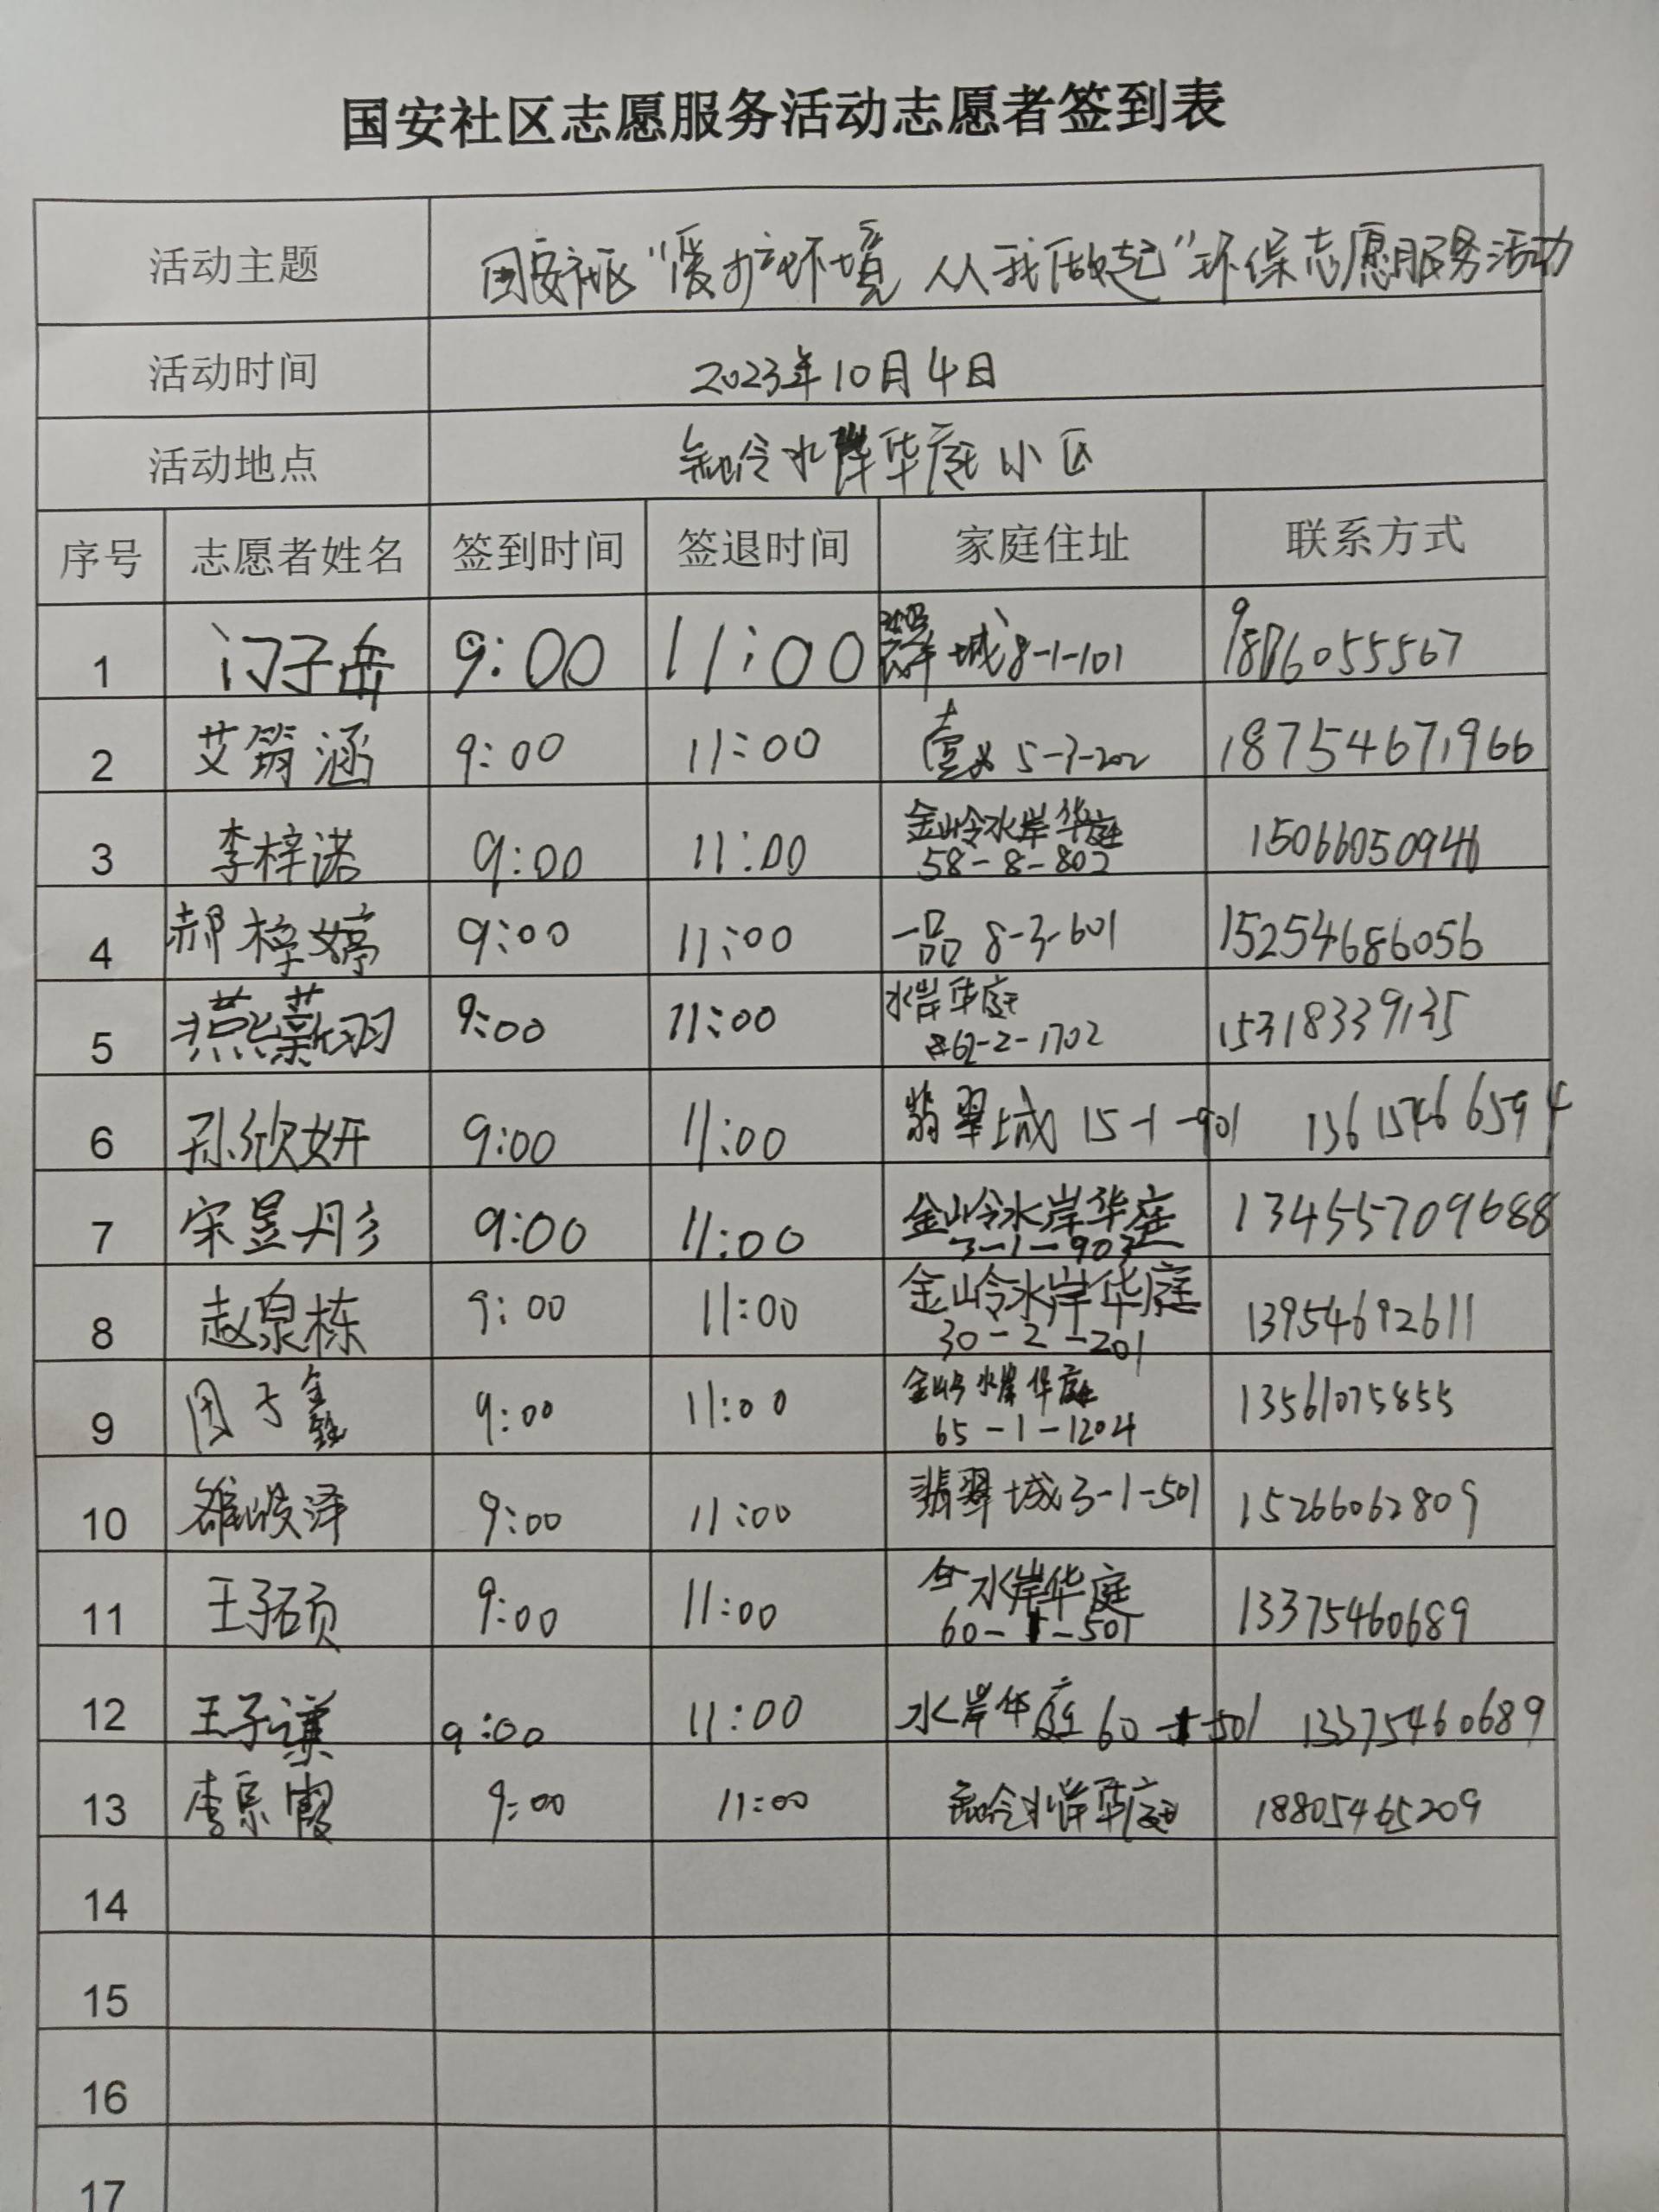 国安社区志愿服务活动志愿者签到表
活动主题 国安社区“爱护环境 人人我做起”环保志愿服务活动
活动时间 2023年10月4日
活动地点 金岭水岸华庭小区
序号 志愿者姓名 签到时间 签退时间 家庭住址 联系方式
1 门子岳 9:00 11:00 翡翠城8-1-101
2 艾箫涵 9:00 11:00 18754671966
3 李梓诺 9:00 11:00 金岭水岸华庭 15066050946
58-8-802
4 郝梓婷 9:00 11:00 一品 8-3-601 15254686056
5 燕薪羽 9:00 11:00 水岸华庭 15318339135
62-2-1702
6 孙欣妍 9:00 11:00 翡翠城 15-1-901 13615466594
7 宋昱彤 9:00 11:00 金岭水岸华庭 134555709688
3-1-903
8 赵泉栋 9:00 11:00 金岭水岸华庭 13954692611
30-2-201
9 周于鑫 9:00 11:00 金岭水岸华庭 13561075855
65-1-1204
10 雒峻泽 9:00 11:00 翡翠城3-1-501 15266062809
11 王子硕 9:00 11:00 水岸华庭 13375460689
60-1-501
12 王子谦 9:00 11:00 水岸华庭 60-1-501 13375460689
13 李京霞 9:00 11:00 金岭水岸华庭 18805465209
14
15
16
17